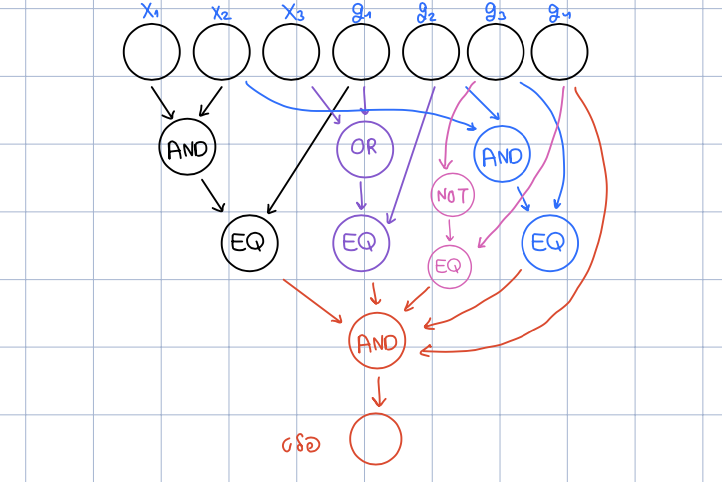 x₁ x₂ x₃ g₁ g₂ g₃ g₄
AND OR AND
NOT
EQ EQ EQ EQ
AND